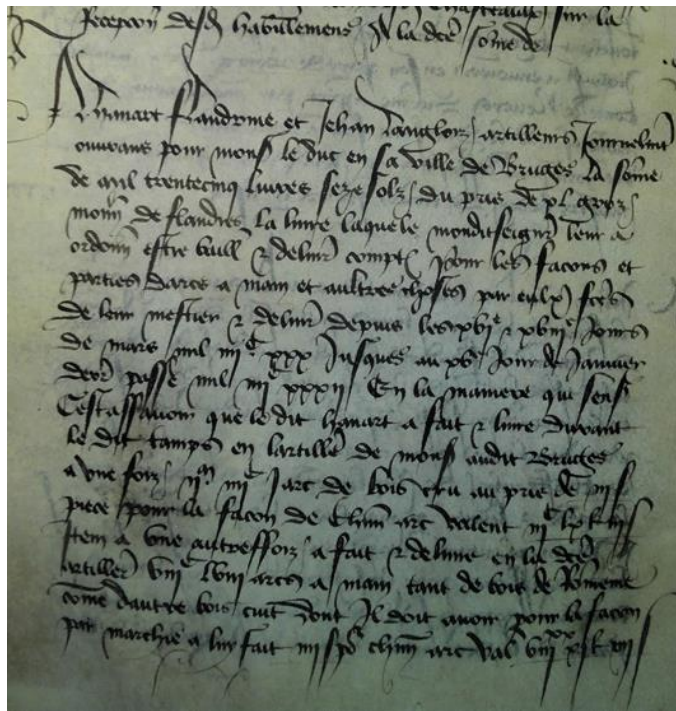 Recepcion desd habillemens A la dce some de
A hanart flandrine et Jehan Langloiz artilleurs Journelmt
ouvrans pour mons le duc en sa ville de Bruges la some
de trentecinq livres seze solz du pris de xl gros
monn de flandres la livre laquele monditseignr leur a
ordonn estre baill & delivr compt pour les facons et
parties darcs a main et aultres choses par eulx fces
de leur mestier & delivr depuis les xvii e xviii e Jours
de mars mil iiii c xxx Jusques au xv e Jour de Janvier
derr passe mil iiii c xxxii En la maniere qui sens
Cestassavoir que le dit hanart a fait & livre durant
le dit tamps en lartille de mons audit Bruges
a une foiz arc de bois cru au pris de iii s
piece pour la facon de chun arc valent
Item a une autreffoiz a fait & delivre en la dce
artiller arcs a main tant de bois de Romenie
come dautre bois cuit dont Il doit avoir pour la facon
par marchie a lui fait chun arc val